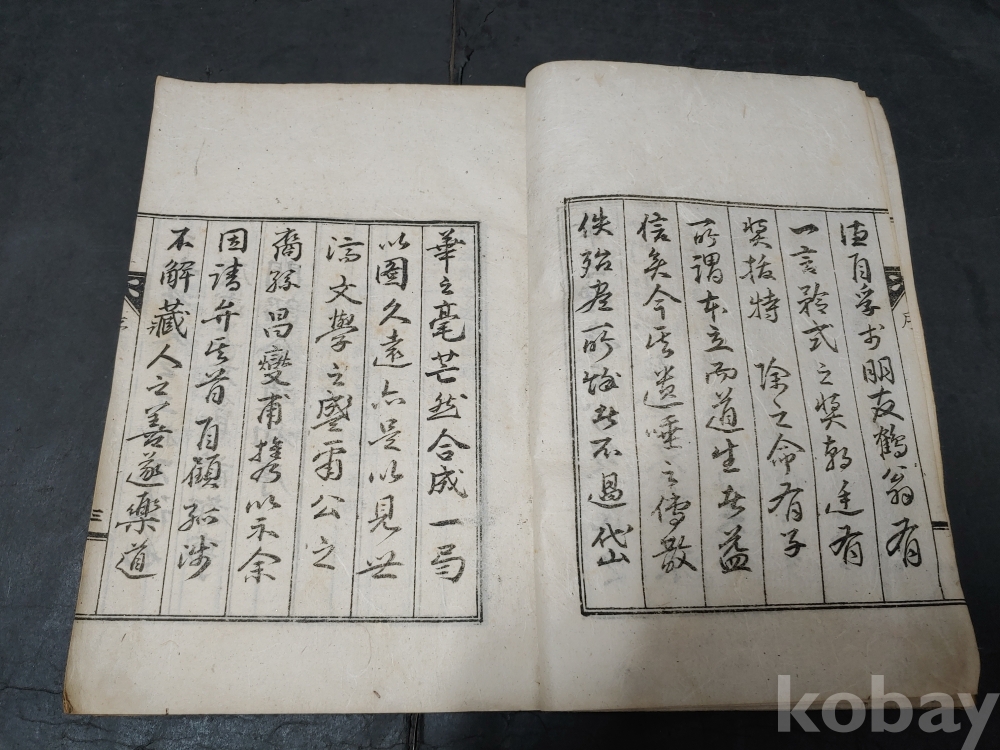 信自孚于朋友鶴翁有
一言矜式之奬朝廷有
奬拔特 除之命有子
所謂本立而道生者益
信矣今其遺唾之傳散
佚殆盡所始者不過岱山
序
華之毫芒然合成一局
以圖久遠亦足以見世
濟文學之盛爾公之
裔孫昌燮甫携以示余
因請弁其首自顧孤陋
不解藏人之善遂樂道
三
kobay